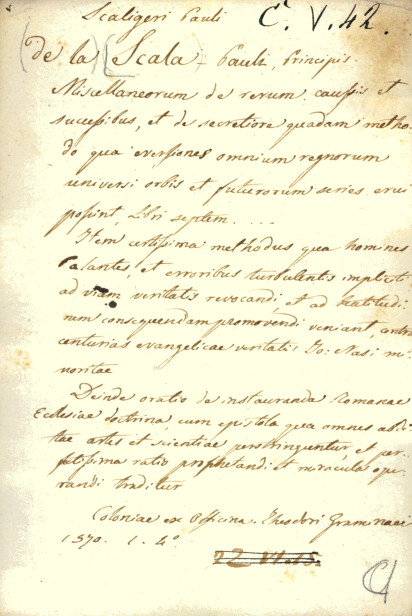 Scaligeri Pauli C. V. 42.
(de la) [Scala Pauli, Principis.
Miscellaneorum de rerum caussis et
sucessibus, et de secretiore quadam metho-
do qua eversiones omnium regnorum
universi orbis et futurorum series erui
possint, Libri septem. ...
Item certissima methodus qua homines
Palantes et erroribus turbulentis impliciti
ad viam veritatis revocandi, et ad beatitudi
nem consequendam promovendi veniant, contra
centurias evangelicae veritatis Jo: Nasi mi-
noritae
Deinde oratio de instauranda Romanae
Ecclesiae doctrina, cum epistola qua omnes abdi
tae artes et scientiae perstringuntur et per-
fectissima ratio prophetandi et miracula ope-
randi traditur
Coloniae ex Officina Theodori Graminaei
1570. 1. 4°
22 VI. 15.